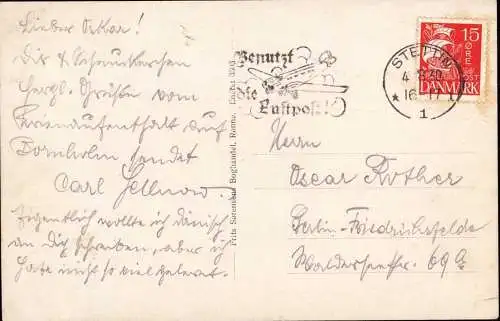 Lieber Oskar!
Dir & Schnurkirchen
herzl. Grüße vom
Ferienaufenthalt auf
Bornholm sendet
Carl Zellnow.
Eigentlich wollte ich dänisch
an dich schreiben, aber ich
habe nicht so viel gelernt.
Fritz Sørensens Boghandel, Rønne.
Benutzt
die
Luftpost!
STETTIN
4. 8. 30
* 16-17
1
15
ØRE
POST
DANMARK
Herrn
Oscar Rother
Berlin-Friedrichsfelde
69 a